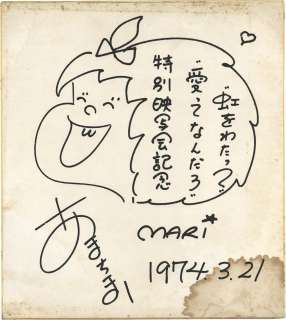 "虹をわたって"
"愛ってなんだろ"
特別映写会記念
あまちまり
MARI
1974 3.21